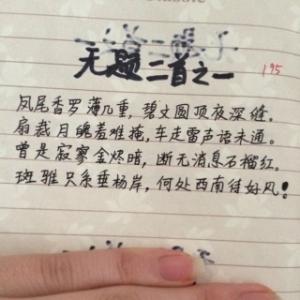 无题二首之一
195
凤尾香罗薄几重，碧文圆顶夜深缝。
扇裁月魄羞难掩，车走雷声语未通。
曾是寂寥金烬暗，断无消息石榴红。
斑骓只系垂杨岸，何处西南待好风！